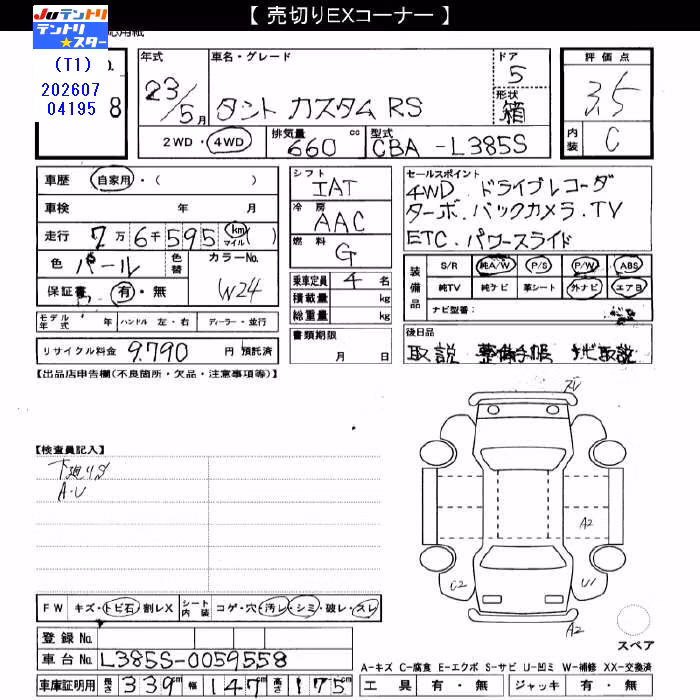 【 売切りEXコーナー 】
JUテントリ
テントリ★スター
(T1)
202607
04195
8
年式
23/5月
車名・グレード
タント カスタム RS
ドア
5
形状
箱
評価点
3.5
内装
C
2WD ・ 4WD
排気量
660 cc
型式
CBA -L385S
車歴 自家用・( )
車検 年 月
走行 7万 6千 595 km マイル ( )
色 パール 色替 カラーNo. W24
保証書 有・無
モデル年式 年 ハンドル 左・右 ディーラー・並行
リサイクル料金 9,790 円 預託済
シフト
IAT
冷房
AAC
燃料
G
乗車定員 4 名
積載量 kg
総重量 kg
書類期限
月 日
セールスポイント
4WD. ドライブレコーダ
ターボ. バックカメラ. TV
ETC. パワースライド
装備品
S/R 純A/W P/S P/W ABS
純TV 純ナビ 革シート 外ナビ エアB
ナビ型番:
後日品
取説 整備手帳 ナビ取説
【出品店申告欄(不良箇所・欠品・注意事項等)】
【検査員記入】
下廻りS
A・U
ズレ
A2
C2
U1
A2
スペア
FW キズ・トビ石・割レX シート内装 コゲ・穴・汚レ・シミ・破レ・スレ
登録No.
車台No. L385S-0059558
車庫証明用 長さ 339 cm 幅 147 cm 高さ 175 cm
A-キズ C-腐食 E-エクボ S-サビ U-凹ミ W-補修 XX-交換済
工具 有・無 ジャッキ 有・無